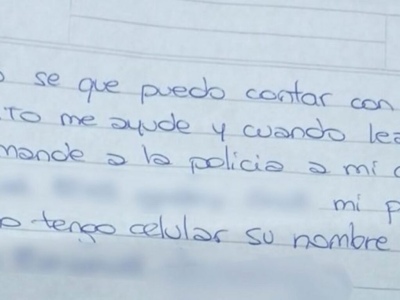 se que puedo contar con
me ayude y cuando lea
mande a la policia a mi
mi p
tengo celular su nombre